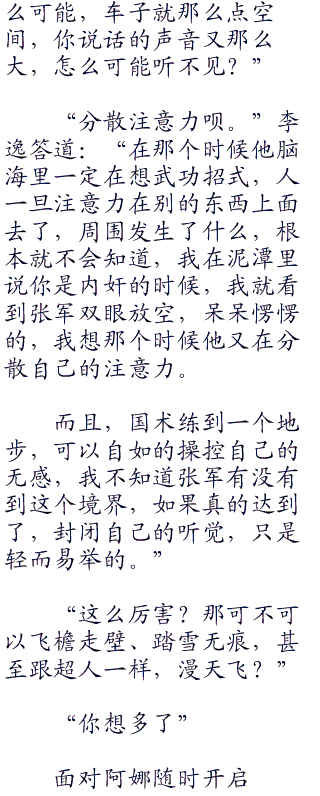 么可能，车子就那么点空
间，你说话的声音又那么
大，怎么可能听不见？”
“分散注意力呗。”李
逸答道：“在那个时候他脑
海里一定在想武功招式，人
一旦注意力在别的东西上面
去了，周围发生了什么，根
本就不会知道，我在泥潭里
说你是内奸的时候，我就看
到张军双眼放空，呆呆愣愣
的，我想那个时候他又在分
散自己的注意力。
而且，国术练到一个地
步，可以自如的操控自己的
无感，我不知道张军有没有
到这个境界，如果真的达到
了，封闭自己的听觉，只是
轻而易举的。”
“这么厉害？那可不可
以飞檐走壁、踏雪无痕，甚
至跟超人一样，漫天飞？”
“你想多了”
面对阿娜随时开启